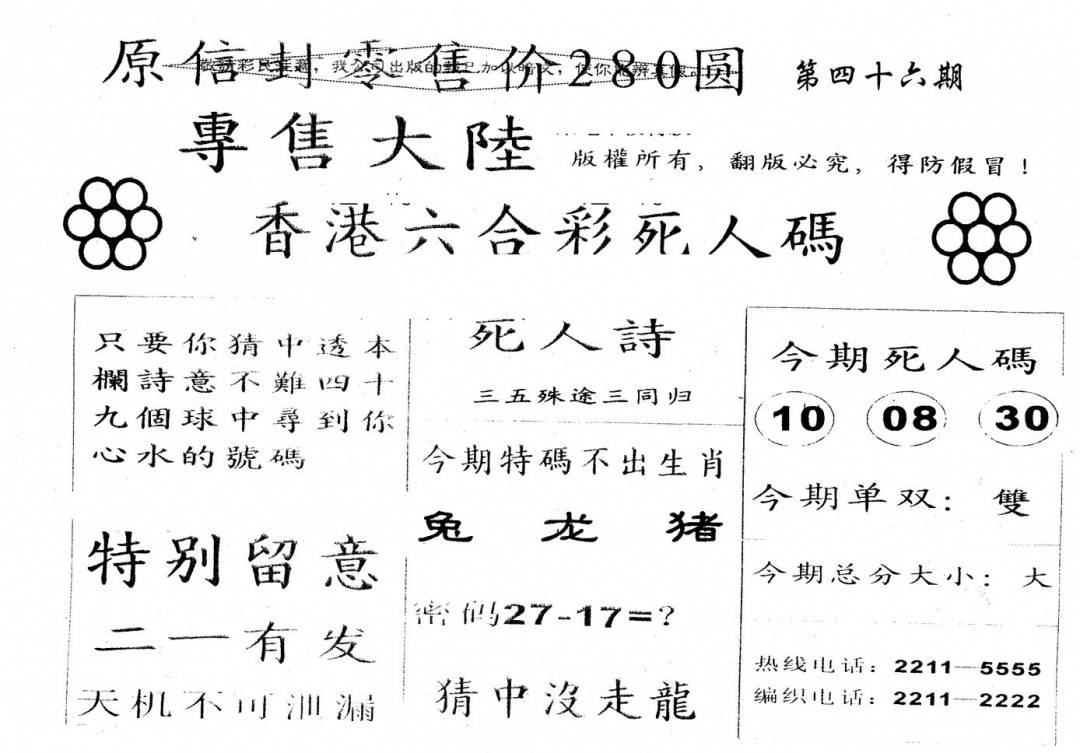 原信封零售价280圆
第四十六期
專售大陸
版權所有，翻版必究，得防假冒！
香港六合彩死人碼
只要你猜中透本
欄詩意不難四十
九個球中尋到你
心水的號碼
特别留意
二一有发
天机不可泄漏
死人詩
三五殊途三同归
今期特碼不出生肖
兔 龙 猪
密码27-17=?
猜中沒走龍
今期死人碼
10 08 30
今期单双：雙
今期总分大小：大
热线电话：2211—5555
编织电话：2211—2222